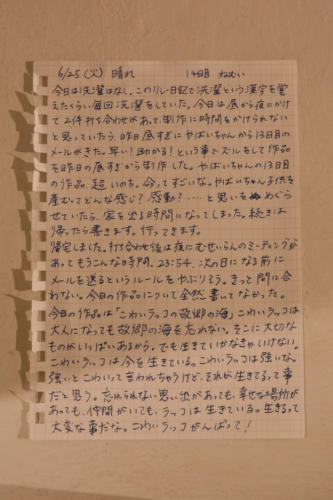 6/25(火) 晴れ 14日目 ねむい
今日は洗濯はなし。このリレー日記で洗濯という漢字を覚
えたくらい毎回洗濯をしていた。今日は昼から夜にかけ
て2件打ち合わせがあって、制作に時間をかけられない
と思っていたら、昨日昼すぎにやばいちゃんから13日目の
メールがきた。早い!助かる!という事でズルをして作品
を昨日の昼すぎから制作した。やばいちゃんの13日目
の作品、超いのち。命ってすごいな。やばいちゃん子供を
産むってどんな感じ?感動?……と思いをめぐら
せていたら、家を出る時間になってしまった。続きは
帰ったら書きます。行ってきます。
帰宅しました。打ち合わせ後は夜にむせいらんのミーティングが
あってもうこんな時間。23:54。次の日になる前に
メールを送るというルールをやぶりそう。きって間に合
わない。今日の作品について全然書いてなかった。
今日の作品は「こわいラッコの故郷の海」こわいラッコは
大人になっても故郷の海を忘れない。そこに大切な
ものがいっぱいあるから。でも生きていかなきゃいけない。
こわいラッコは今を生きている。こわいラッコは強いな。
強いとこわいって言われちゃうけど、それが生きてるって事
だと思う。忘れられない思い出があっても、幸せな場所が
あっても、仲間がいても、ラッコは生きている。生きるって
大変な事だな。こわいラッコがんばって!